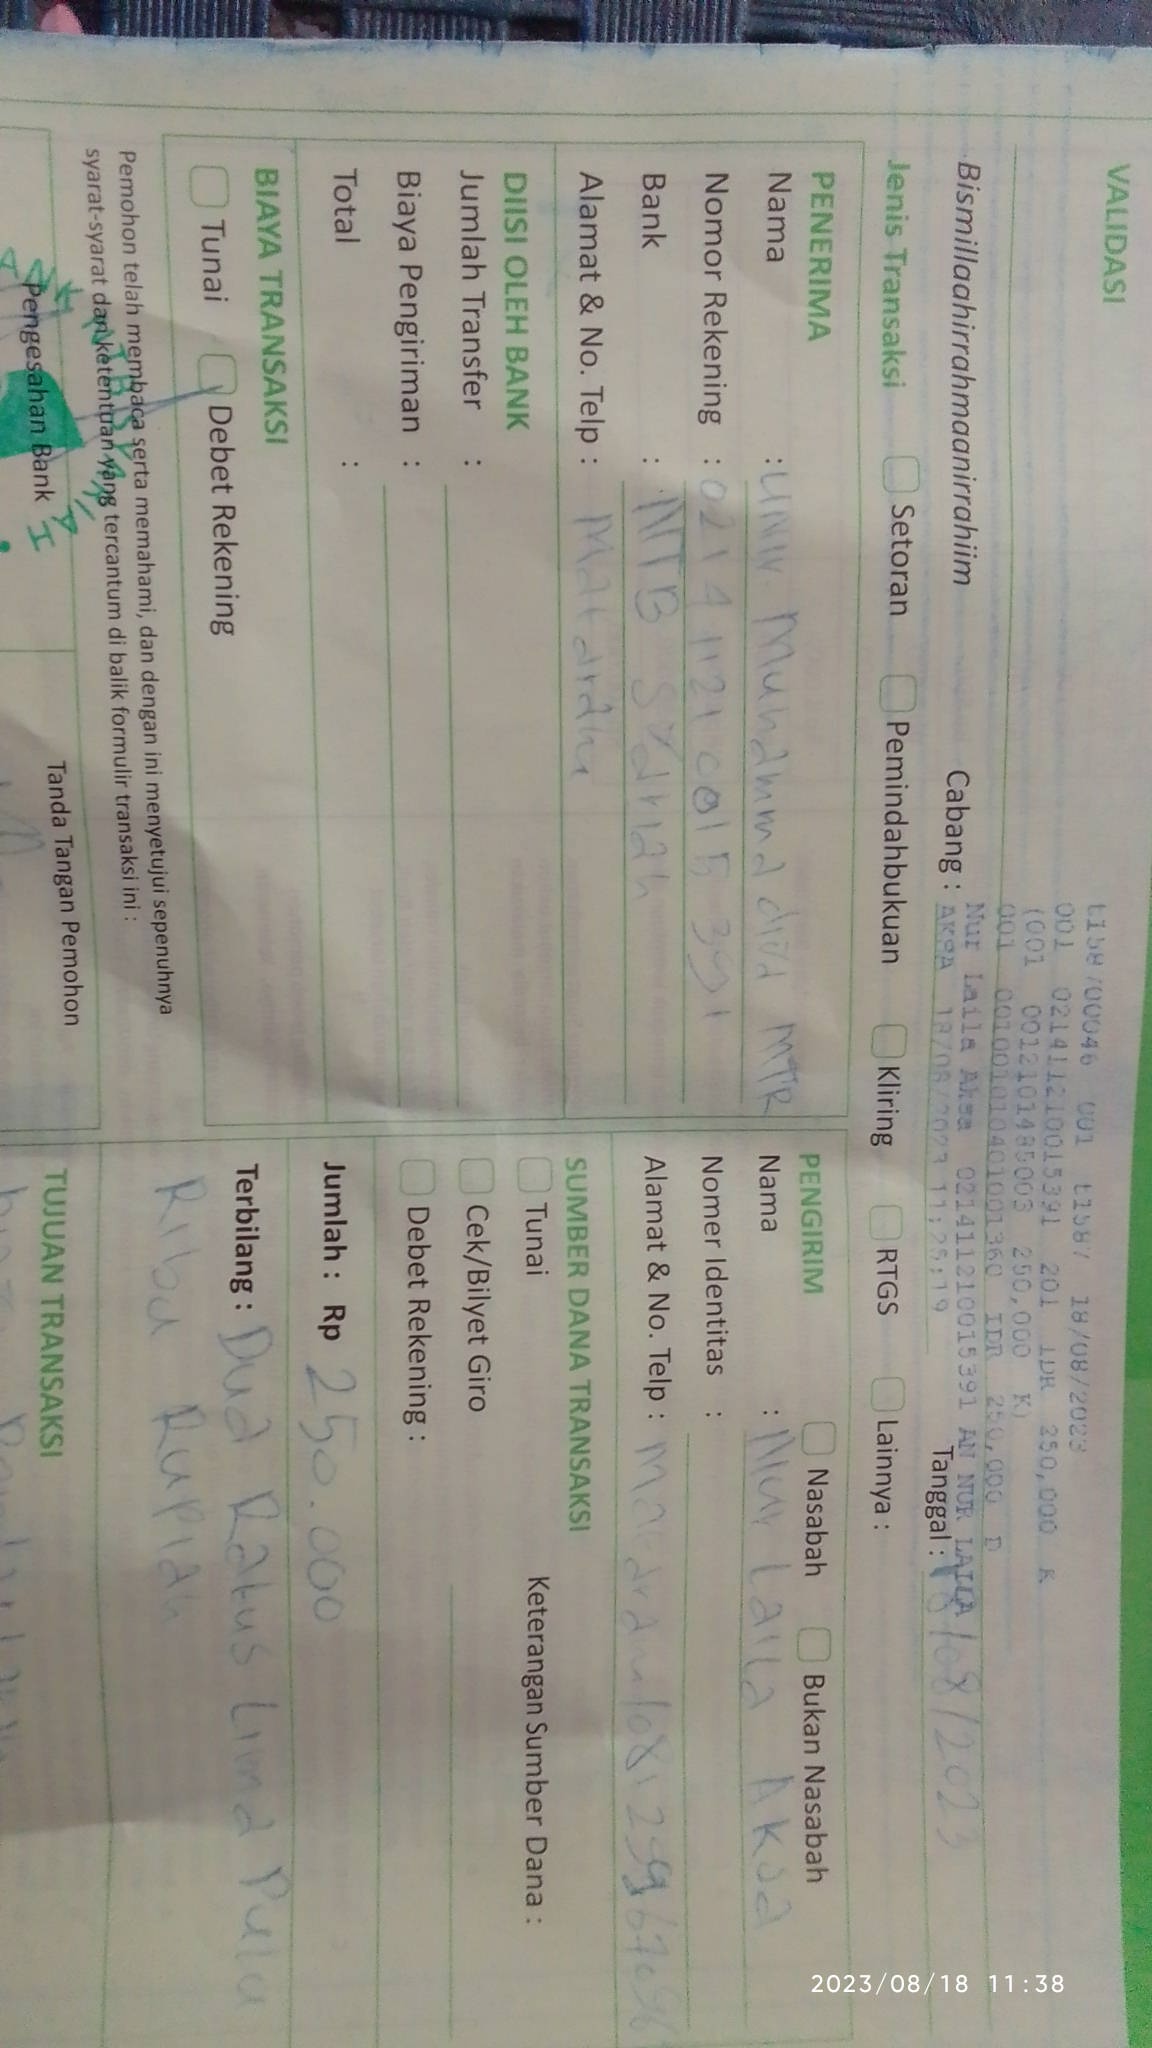 VALIDASI
t158700046 001 t1587 18/08/2023
001 021411210015391 201 IDR 250,000 K
(001 001210148500З 250,000 K)
001 001001010401001360 IDR 250,000 D
Nur Laila Aksa 021411210015391 AN NUR LAILA
AKSA 18/08/2023 11:25:19
Bismillaahirrahmaanirrahiim Cabang : Tanggal : 18/08/2023
Jenis Transaksi Setoran Pemindahbukuan Kliring RTGS Lainnya :
PENERIMA
Nama : Univ. Muhammadida MTR
Nomor Rekening : 021411210015391
Bank : NTB Syariah
Alamat & No. Telp : Mataram
DIISI OLEH BANK
Jumlah Transfer :
Biaya Pengiriman :
Total :
BIAYA TRANSAKSI
Tunai Debet Rekening
Pemohon telah membaca serta memahami, dan dengan ini menyetujui sepenuhnya
syarat-syarat dan ketentuan yang tercantum di balik formulir transaksi ini :
Pengesahan Bank Tanda Tangan Pemohon
PENGIRIM Nasabah Bukan Nasabah
Nama : Nur Laila Aksa
Nomer Identitas :
Alamat & No. Telp :
SUMBER DANA TRANSAKSI
Tunai Keterangan Sumber Dana :
Cek/Bilyet Giro
Debet Rekening :
Jumlah : Rp 250.000
Terbilang : Dua Ratus Lima Pulu
Ribu Rupiah
TUJUAN TRANSAKSI
2023/08/18 11:38